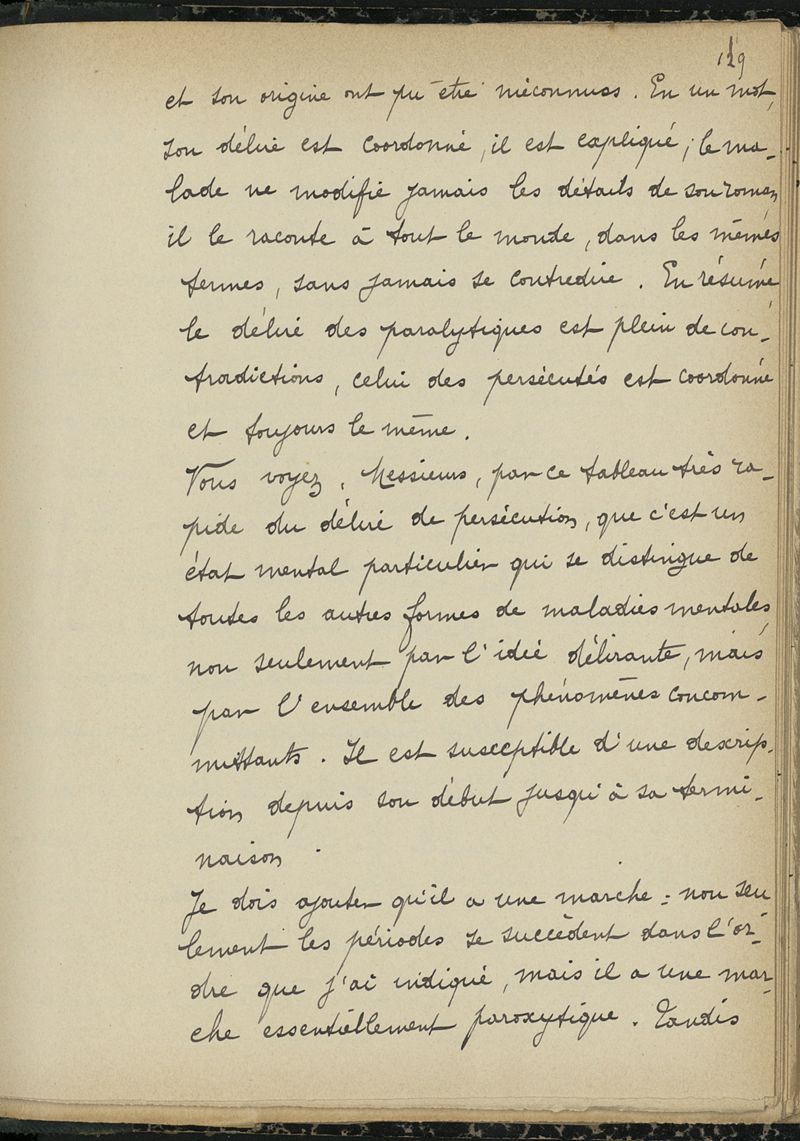 129
et son origine ont pu être méconnues. En un mot,
son délire est coordonné, il est expliqué ; le ma-
lade ne modifie jamais les détails de son roman,
il le raconte à tout le monde, dans les mêmes
termes, sans jamais se contredire. En résumé
le délire des paralytiques est plein de con-
tradictions, celui des persécutés est coordonné
et toujours le même.
Vous voyez, Messieurs, par ce tableau très ra-
pide du délire de persécution, que c'est un
état mental particulier qui se distingue de
toutes les autres formes de maladies mentales,
non seulement par l'idée délirante, mais
par l'ensemble des phénomènes concom-
mittants. Il est susceptible d'une descrip-
tion depuis son début jusqu'à sa termi-
naison.
Je dois ajouter qu'il a une marche : non seu
lement les périodes se succèdent dans l'or-
dre que j'ai indiqué, mais il a une mar-
che essentiellement paroxytique. Tandis